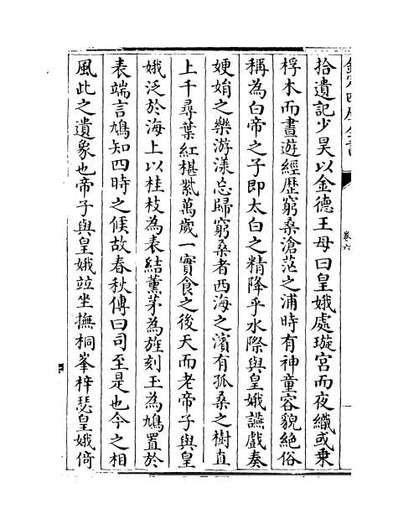 拾遺記少昊以金德王母曰皇娥處璇宮而夜織或乗
桴木而晝遊經歴窮桑滄茫之浦時有神童容貌絶俗
稱為白帝之子即太白之精降乎水際與皇娥讌戲奏
㛹娟之樂游漾忘歸窮桑者西海之濱有孤桑之樹直
上千尋葉紅椹紫萬歲一實食之後天而老帝子與皇
娥泛於海上以桂枝為表結薰茅為旌刻玉為鳩置於
表端言鳩知四時之候故春秋傳曰司至是也今之相
風此之遺象也帝子與皇娥竝坐撫桐峯梓瑟皇娥倚
卷六